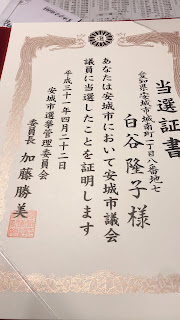 当選証書
愛知県安城市城南町二丁目八番地七
白谷隆子様
あなたは安城市において安城市議会
議員に当選したことを証明します
平成三十一年四月二十二日
安城市選挙管理委員会
委員長 加藤勝美